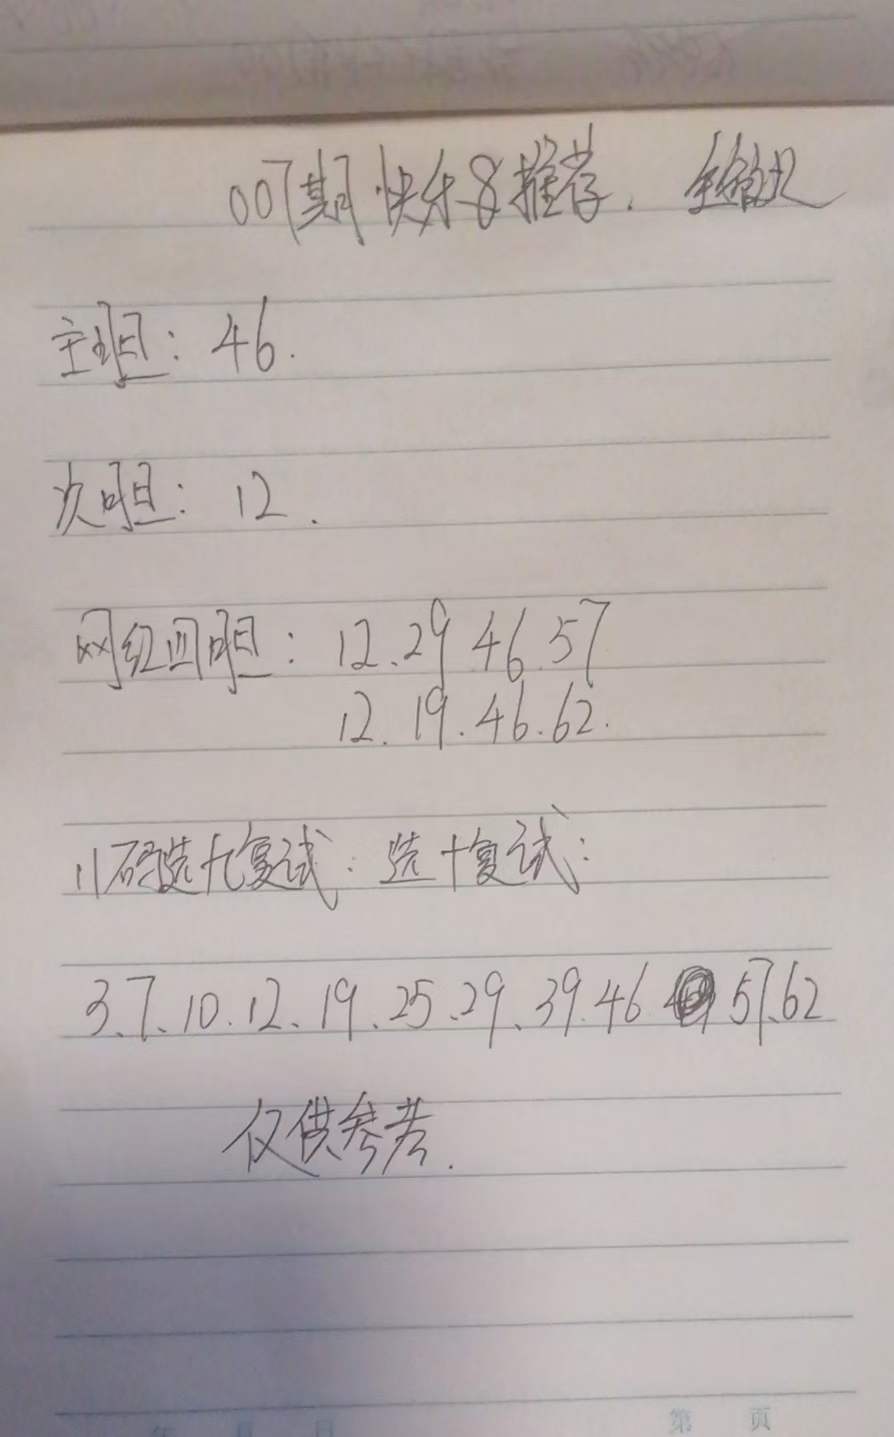 007期快乐8推荐.
主胆: 46.
次胆: 12.
网红四胆: 12.29 46.57
12.19.46.62.
11码选九复试: 选十复试:
3.7.10.12.19.25.29.39.46 57.62
仅供参考.
年 月 日 第 页